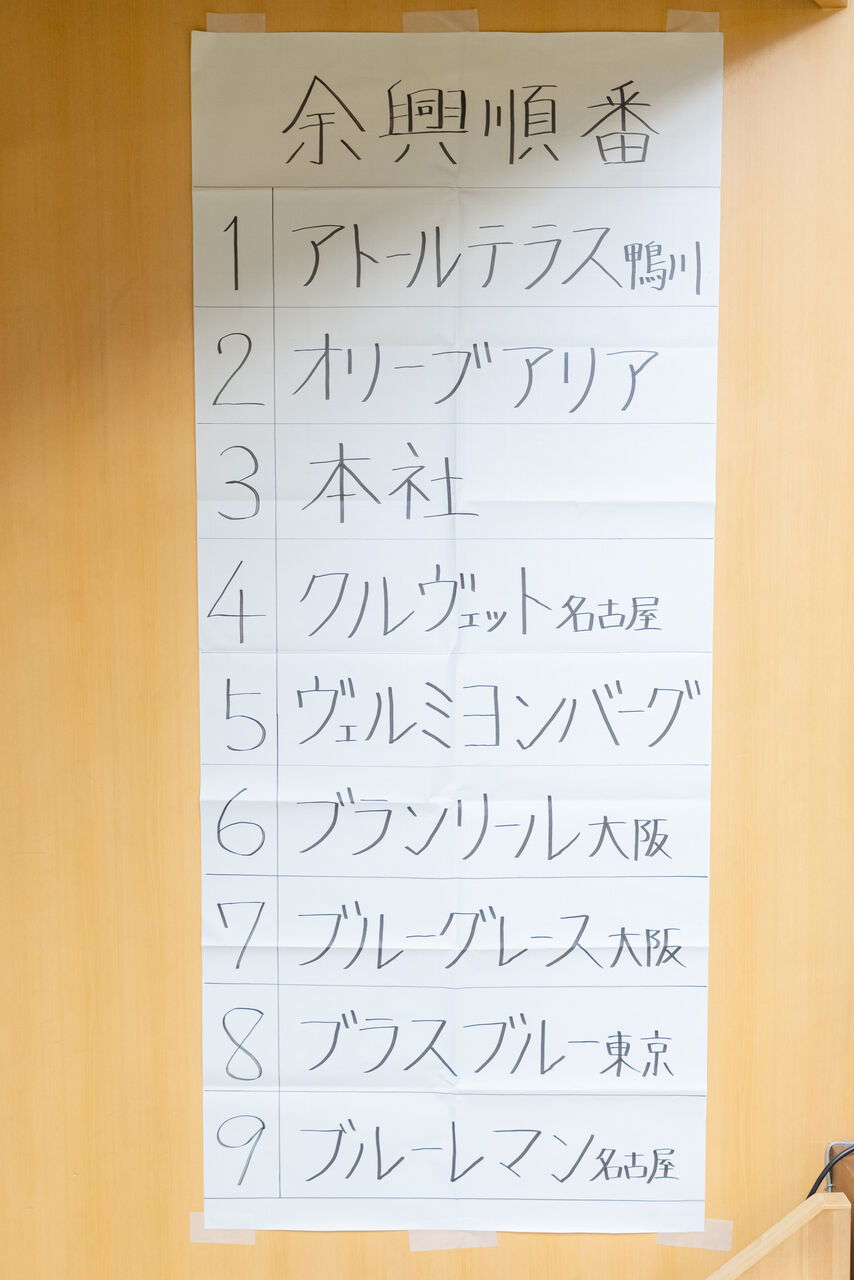 余興順番
1 アトールテラス鴨川
2 オリーブアリア
3 本社
4 クルヴェット名古屋
5 ヴェルミヨンバーグ
6 ブランリール大阪
7 ブルーグレース大阪
8 ブラスブルー東京
9 ブルーレマン名古屋